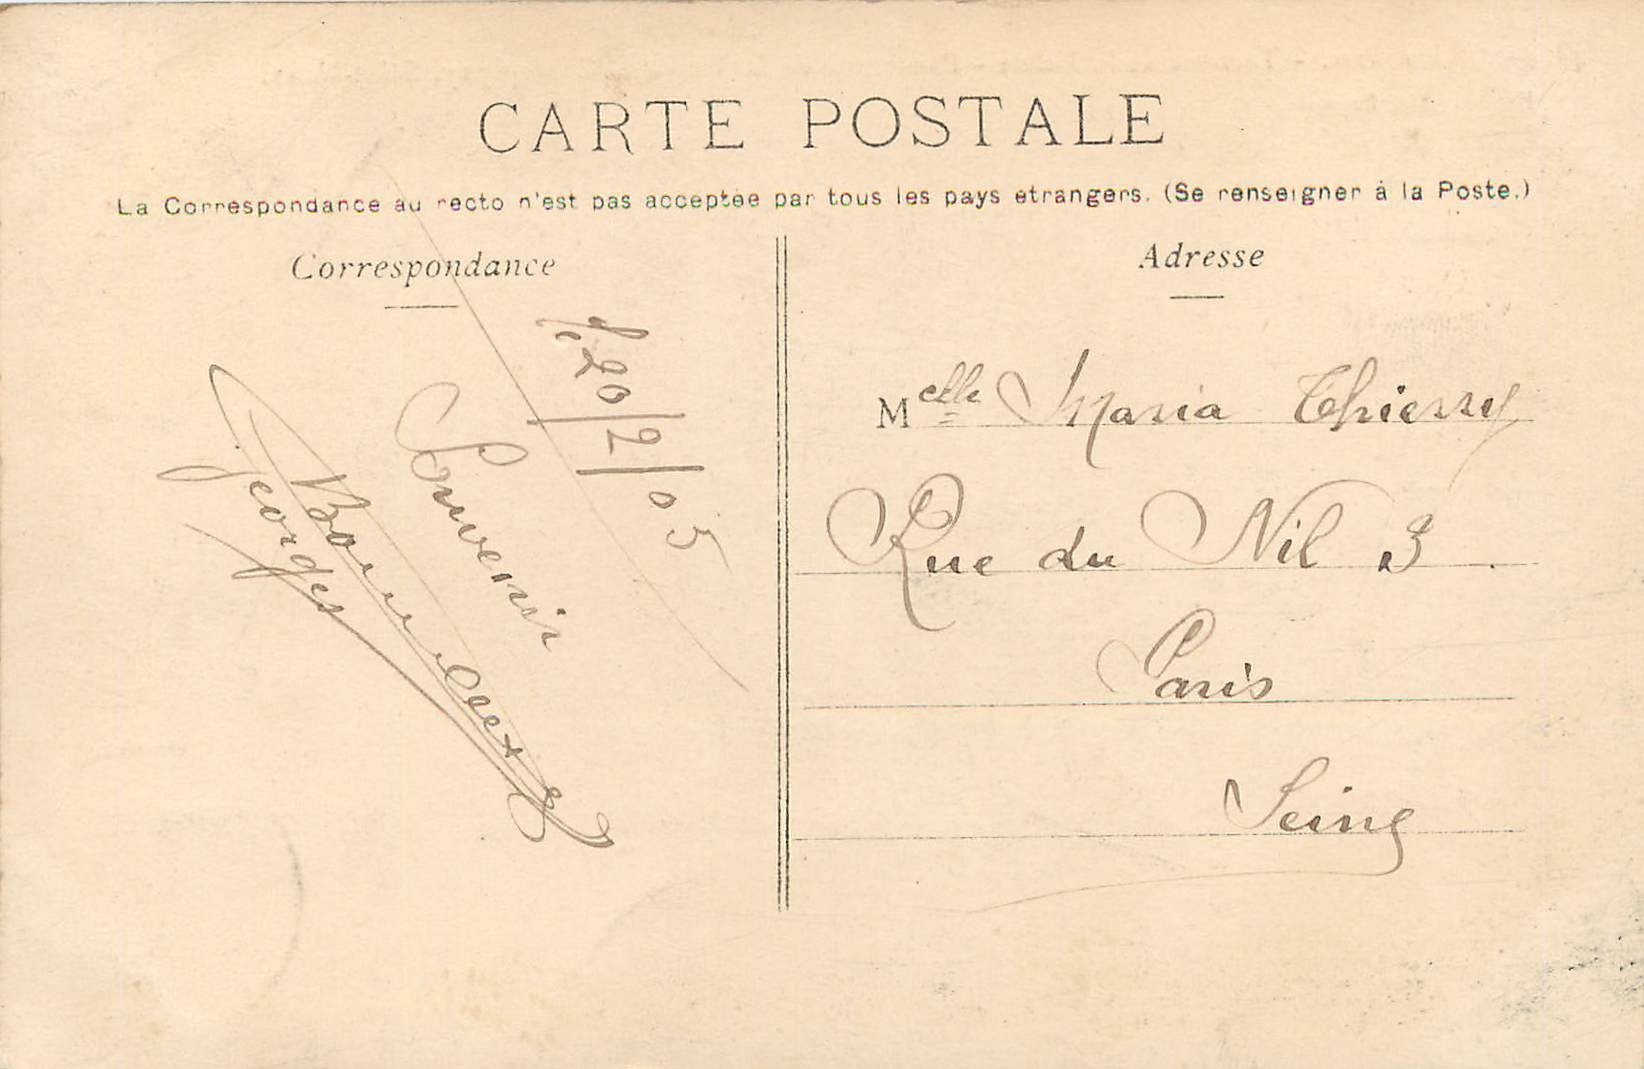 CARTE POSTALE
La Correspondance au recto n'est pas acceptée par tous les pays etrangers. (Se renseigner à la Poste.)
Correspondance
20/2/05
Souvenir
Georges
Adresse
Melle Maria Thierry
Rue du Nil 3
Paris
Seine